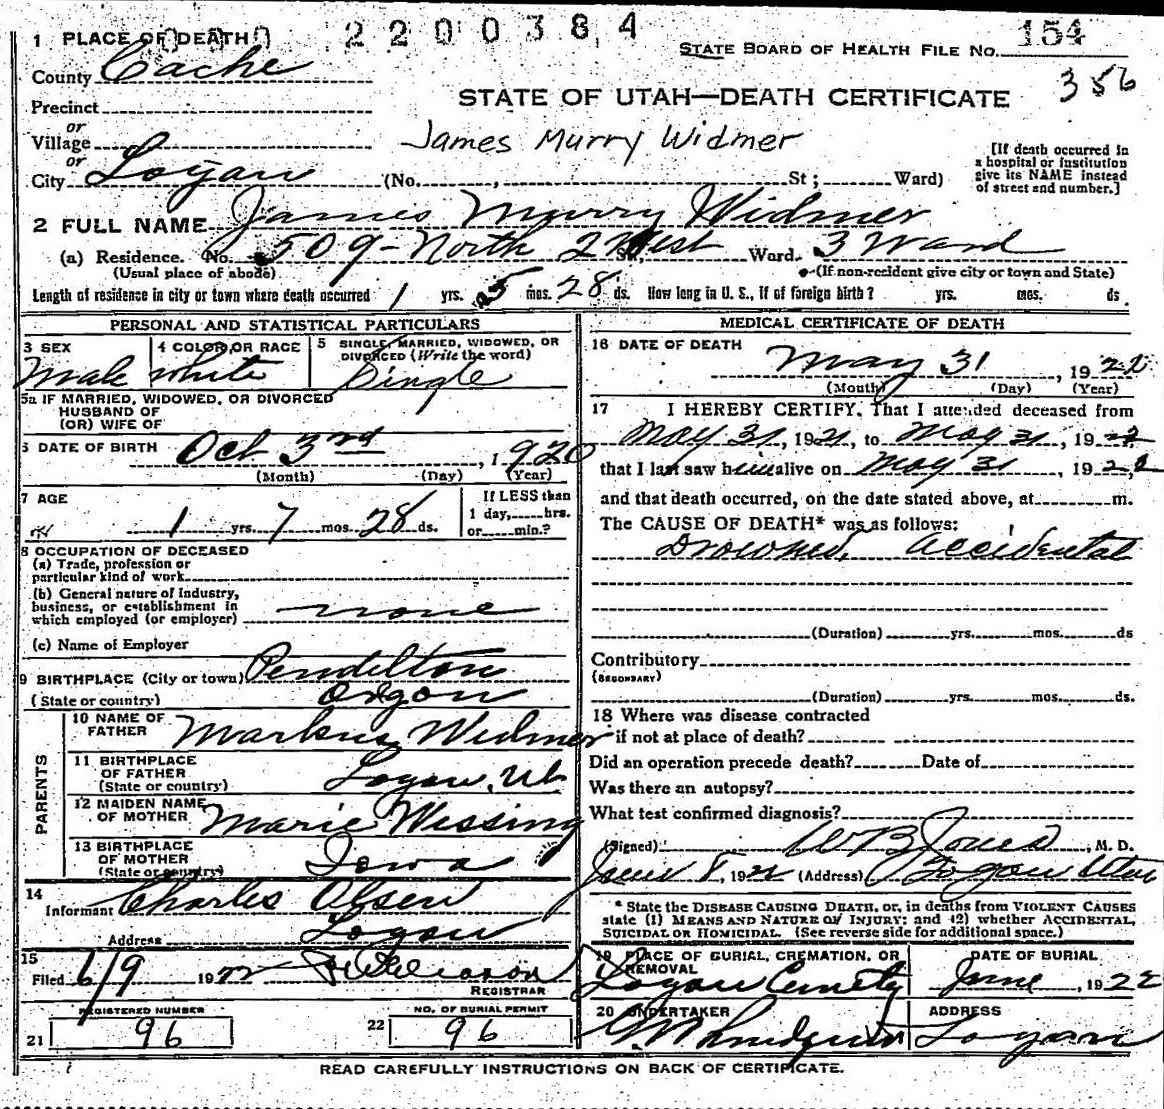 2200384
1 PLACE OF DEATH
STATE BOARD OF HEALTH FILE NO. 154
County Cache
356
Precinct
STATE OF UTAH—DEATH CERTIFICATE
or
Village
James Murry Widmer
or
City Logan (No. , St; Ward)
[If death occurred in
a hospital or institution
give its NAME instead
of street and number.]
2 FULL NAME James Murry Widmer
(a) Residence. No. 509-North 2 West St. Ward. 3 Ward
(Usual place of abode) (If non-resident give city or town and State)
Length of residence in city or town where death occurred 1 yrs. 5 mos. 28 ds. How long in U. S., if of foreign birth? yrs. mos. ds.
PERSONAL AND STATISTICAL PARTICULARS
3 SEX
Male
4 COLOR OR RACE
White
5 SINGLE, MARRIED, WIDOWED, OR
DIVORCED (Write the word)
Single
5a IF MARRIED, WIDOWED, OR DIVORCED
HUSBAND OF
(OR) WIFE OF
6 DATE OF BIRTH Oct 3rd, 1920
(Month) (Day) (Year)
7 AGE
1 yrs. 7 mos. 28 ds.
If LESS than
1 day, hrs.
or min.?
8 OCCUPATION OF DECEASED
(a) Trade, profession or
particular kind of work
(b) General nature of industry,
business, or establishment in
which employed (or employer) none
(c) Name of Employer
9 BIRTHPLACE (City or town) Pendelton
(State or country) Orgon
PARENTS
10 NAME OF
FATHER Markus Widmer
11 BIRTHPLACE
OF FATHER
(State or country) Logan, Ut
12 MAIDEN NAME
OF MOTHER Marie Wissing
13 BIRTHPLACE
OF MOTHER
(State or country) Iowa
14
Informant Charles Olsen
Address Logan
15
Filed 6/9 1922
REGISTRAR
REGISTERED NUMBER
21 96
NO. OF BURIAL PERMIT
22 96
MEDICAL CERTIFICATE OF DEATH
16 DATE OF DEATH
May 31, 1922
(Month) (Day) (Year)
17 I HEREBY CERTIFY, That I attended deceased from
May 31, 1921, to May 31, 1922
that I last saw him alive on May 31, 1922
and that death occurred, on the date stated above, at m.
The CAUSE OF DEATH* was as follows:
Drowned, accidental
(Duration) yrs. mos. ds
Contributory
(SECONDARY)
(Duration) yrs. mos. ds.
18 Where was disease contracted
if not at place of death?
Did an operation precede death? Date of
Was there an autopsy?
What test confirmed diagnosis?
(Signed) WB Jones, M. D.
June 8, 1922 (Address) Logan Utah
* State the DISEASE CAUSING DEATH, or, in deaths from VIOLENT CAUSES
state (1) MEANS AND NATURE OF INJURY; and (2) whether ACCIDENTAL,
SUICIDAL OR HOMICIDAL. (See reverse side for additional space.)
19 PLACE OF BURIAL, CREMATION, OR
REMOVAL
Logan Cemety
DATE OF BURIAL
June, 1922
20 UNDERTAKER
ADDRESS
Logan
READ CAREFULLY INSTRUCTIONS ON BACK OF CERTIFICATE.